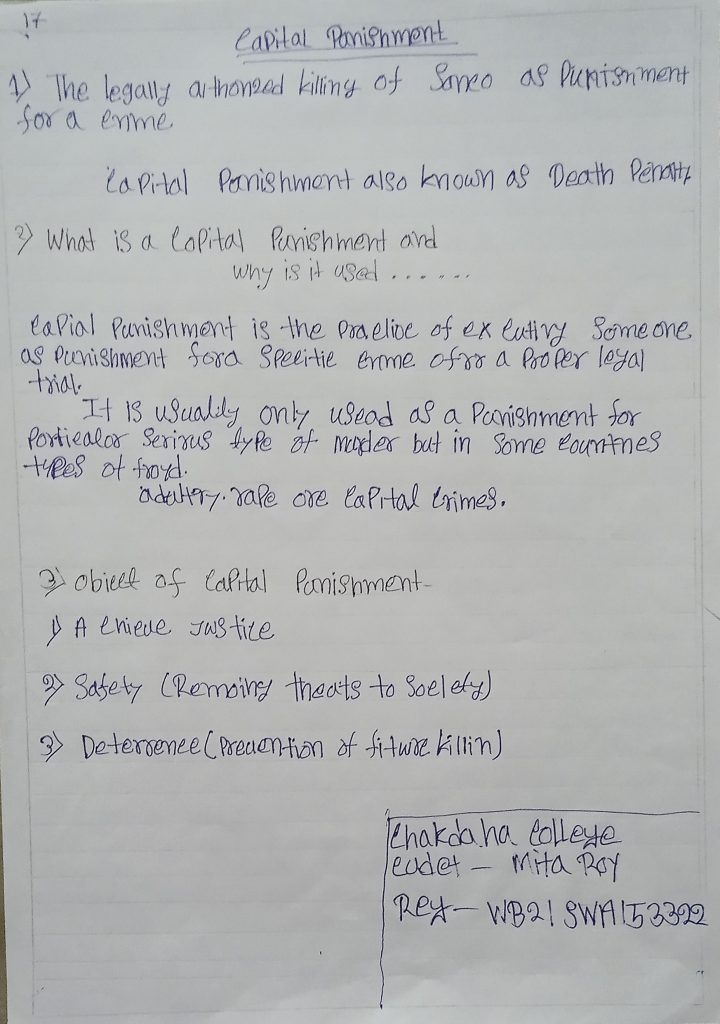 17
Capital Punishment
1) The legally authonzed killing of Soneo as Punishment
for a enme
Capital Punishment also known as Death Penalty
2) What is a Capital Punishment and
why is it used .......
Capial Punishment is the Praelice of ex cutivy Some one
as Punishment fora Speeitie enme ofrr a Proper legal
trial.
It is usually only usead as a Punishment for
Particalor Serirus type of murder but in Some countnes
types of froyd.
adultery. rape are Capital Crimes.
3) Obieet of Capital Punishment-
1) A chieve Justice
2) Safety (Remoing theats to Soelety)
3) Deterrence (Prevention of fiture killin)
Chakdaha College
cudet - Mita Roy
Rey- WB21 SWA153322